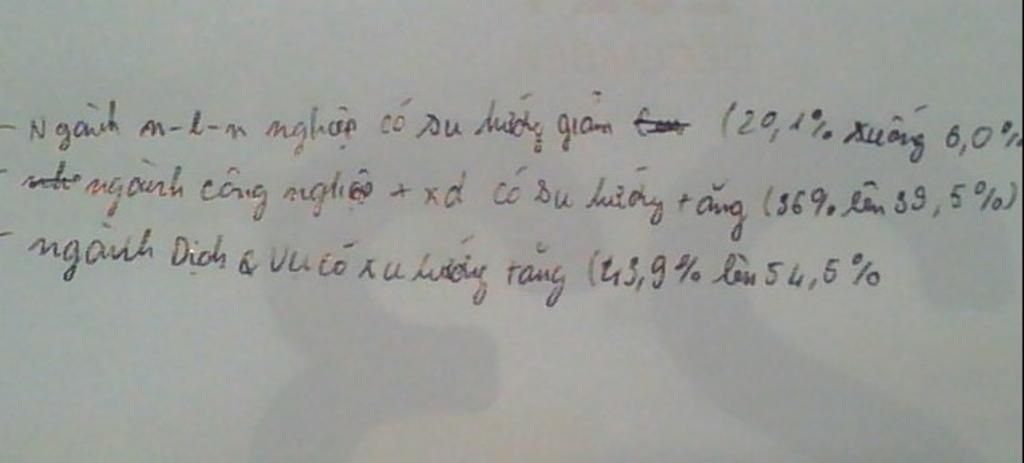 - Ngành n-l-n nghiệp có xu hướng giảm (20,1% xuống 6,0%
- ngành công nghiệp + xd có xu hướng tăng (36% lên 39,5%)
- ngành Dịch & Vụ có xu hướng tăng (43,9% lên 54,5%